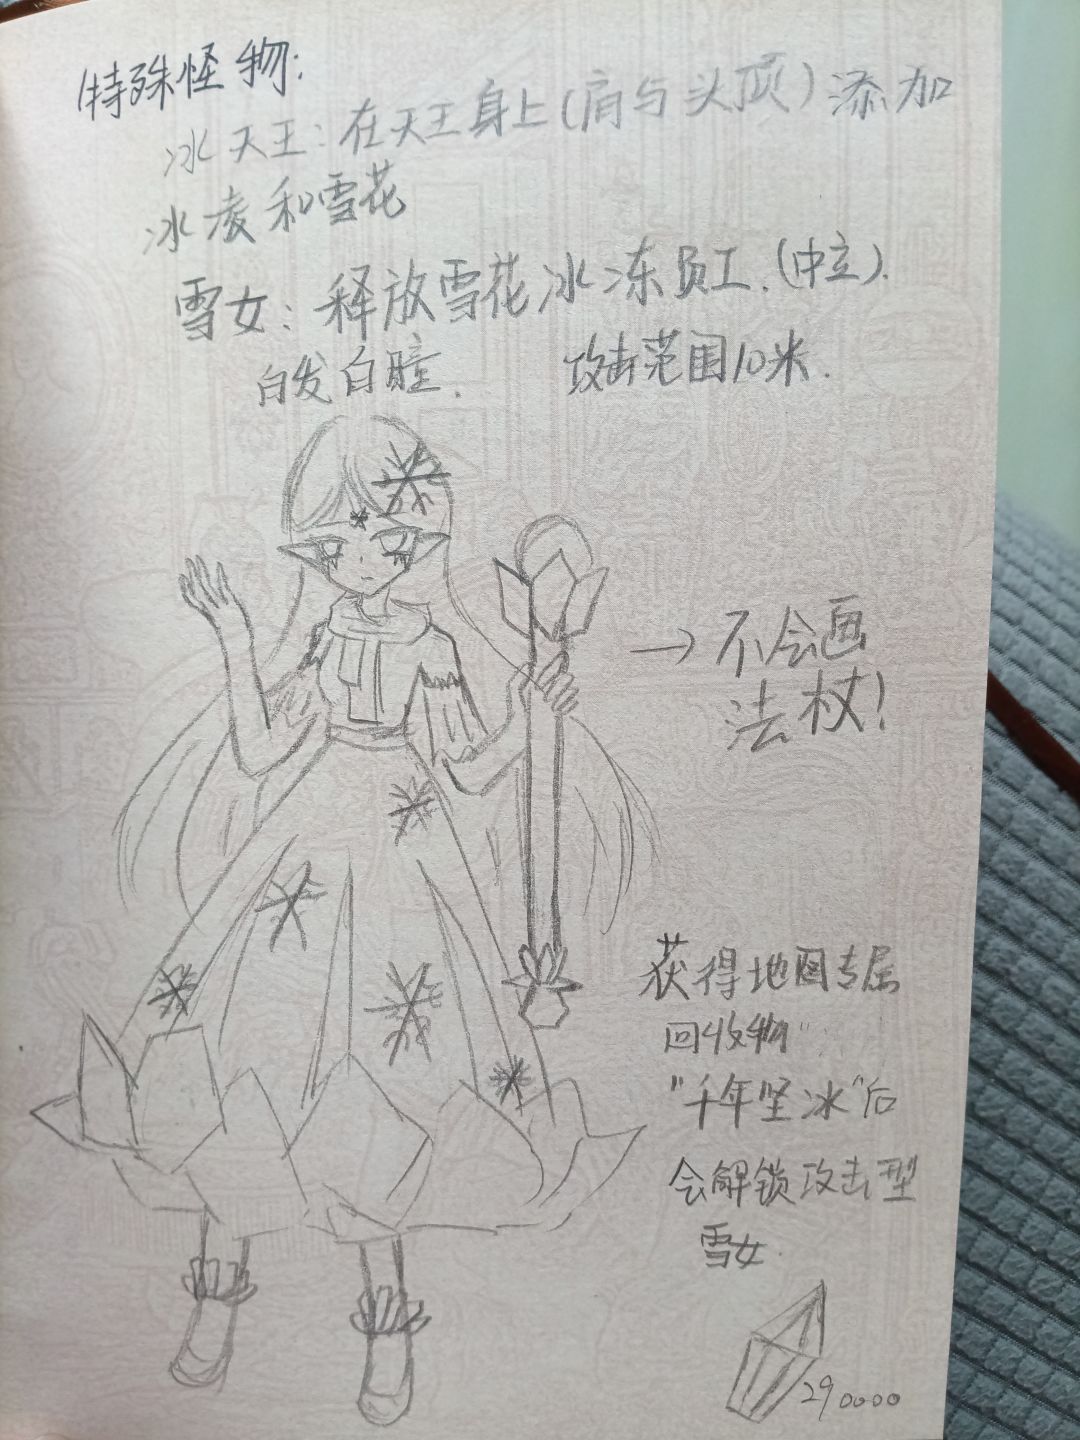 特殊怪物：
冰天王：在天王身上（肩与头顶）添加
冰凌和雪花
雪女：释放雪花冰冻员工.（中立）.
白发白瞳.
攻击范围10米.
→不会画
法杖！
获得地图专属
回收物"
"千年坚冰"后
会解锁攻击型
雪女.
290000